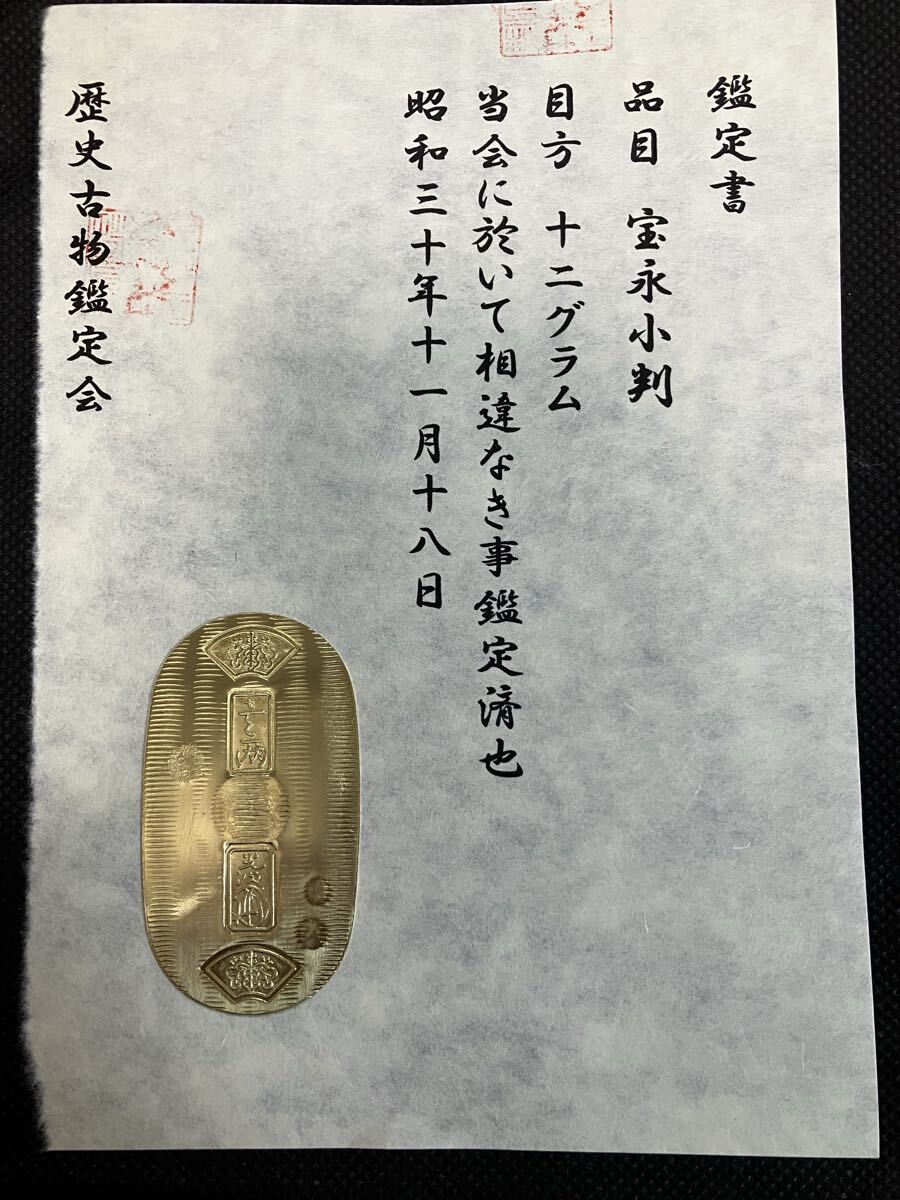 鑑定書
品目 宝永小判
目方 十二グラム
当会に於いて相違なき事鑑定済也
昭和三十年十一月十八日
歴史古物鑑定会